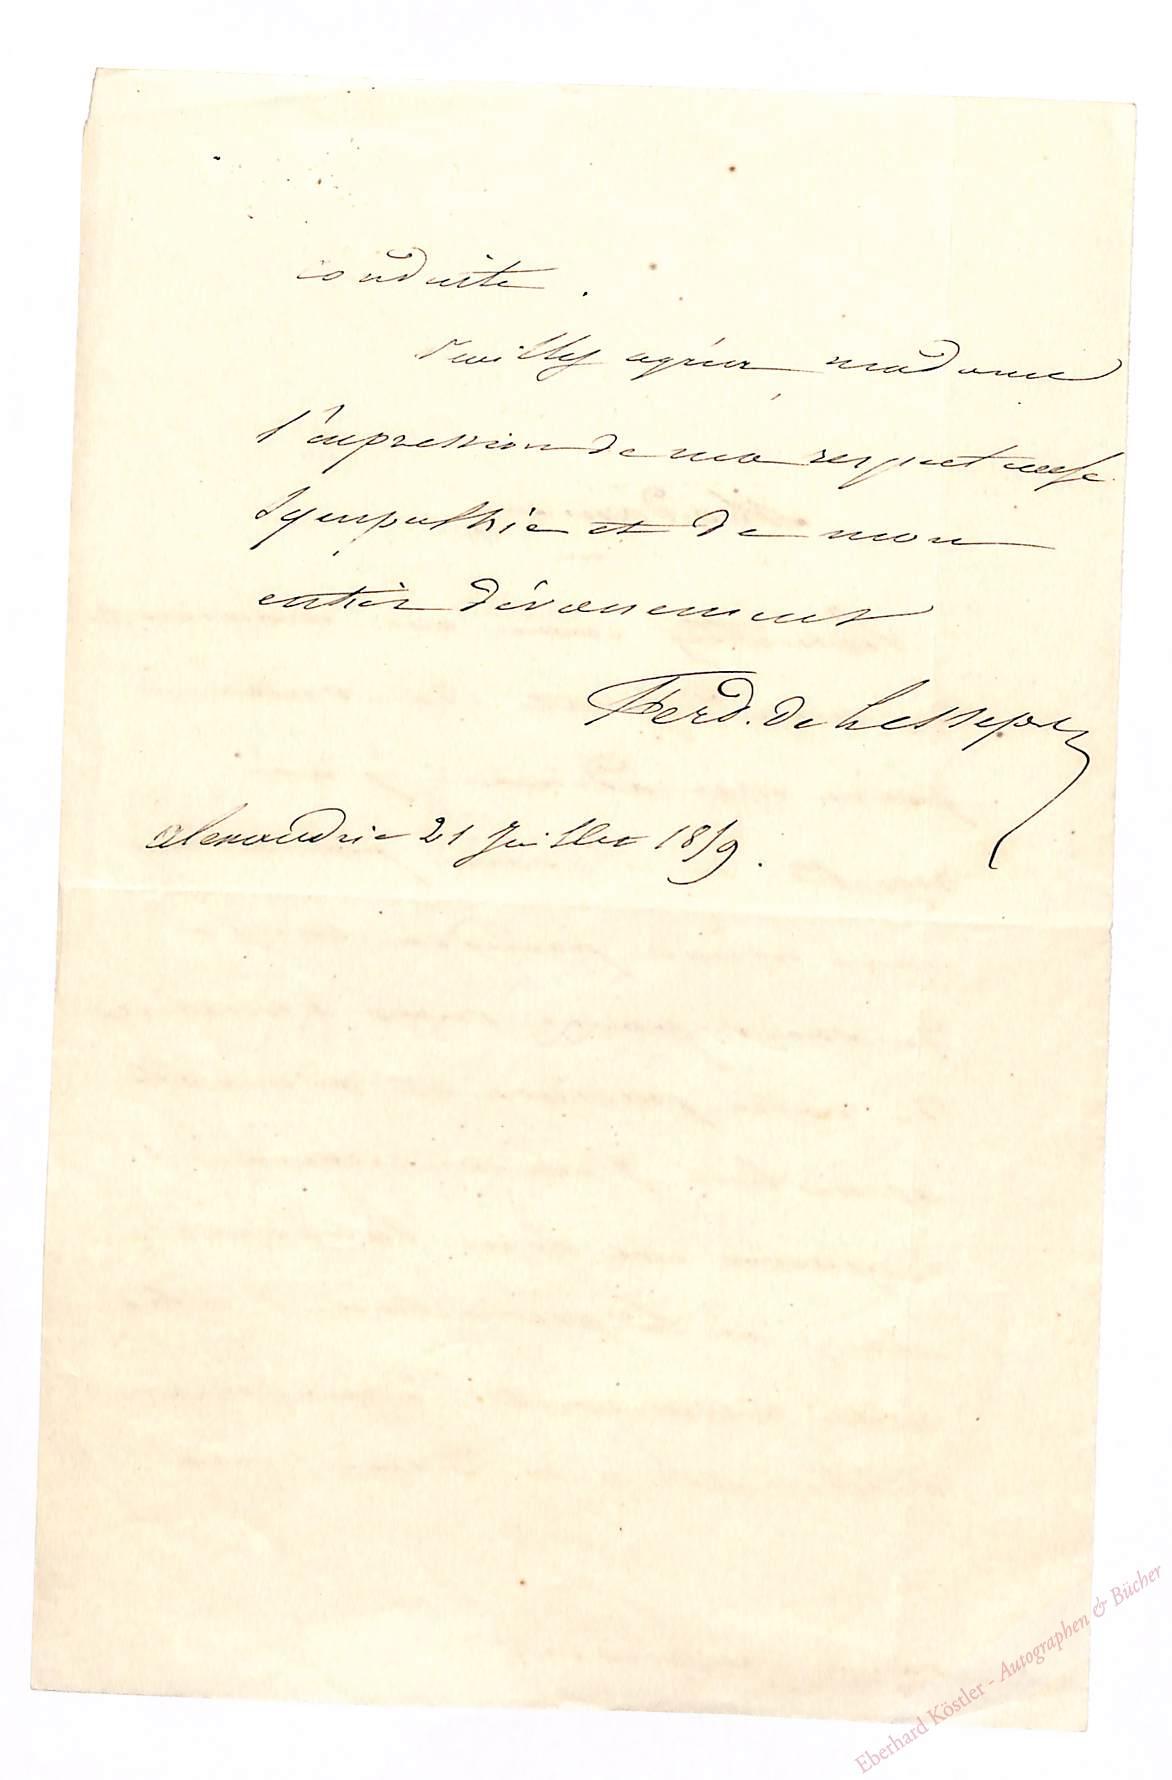 conduite.
Veuillez agréer madame
l'expression de ma respectueuse
sympathie et de mon
entier dévouement
Ferd. de Lesseps
alexandrie 21 Juillet 1859.
Eberhard Köstler - Autographen & Bücher